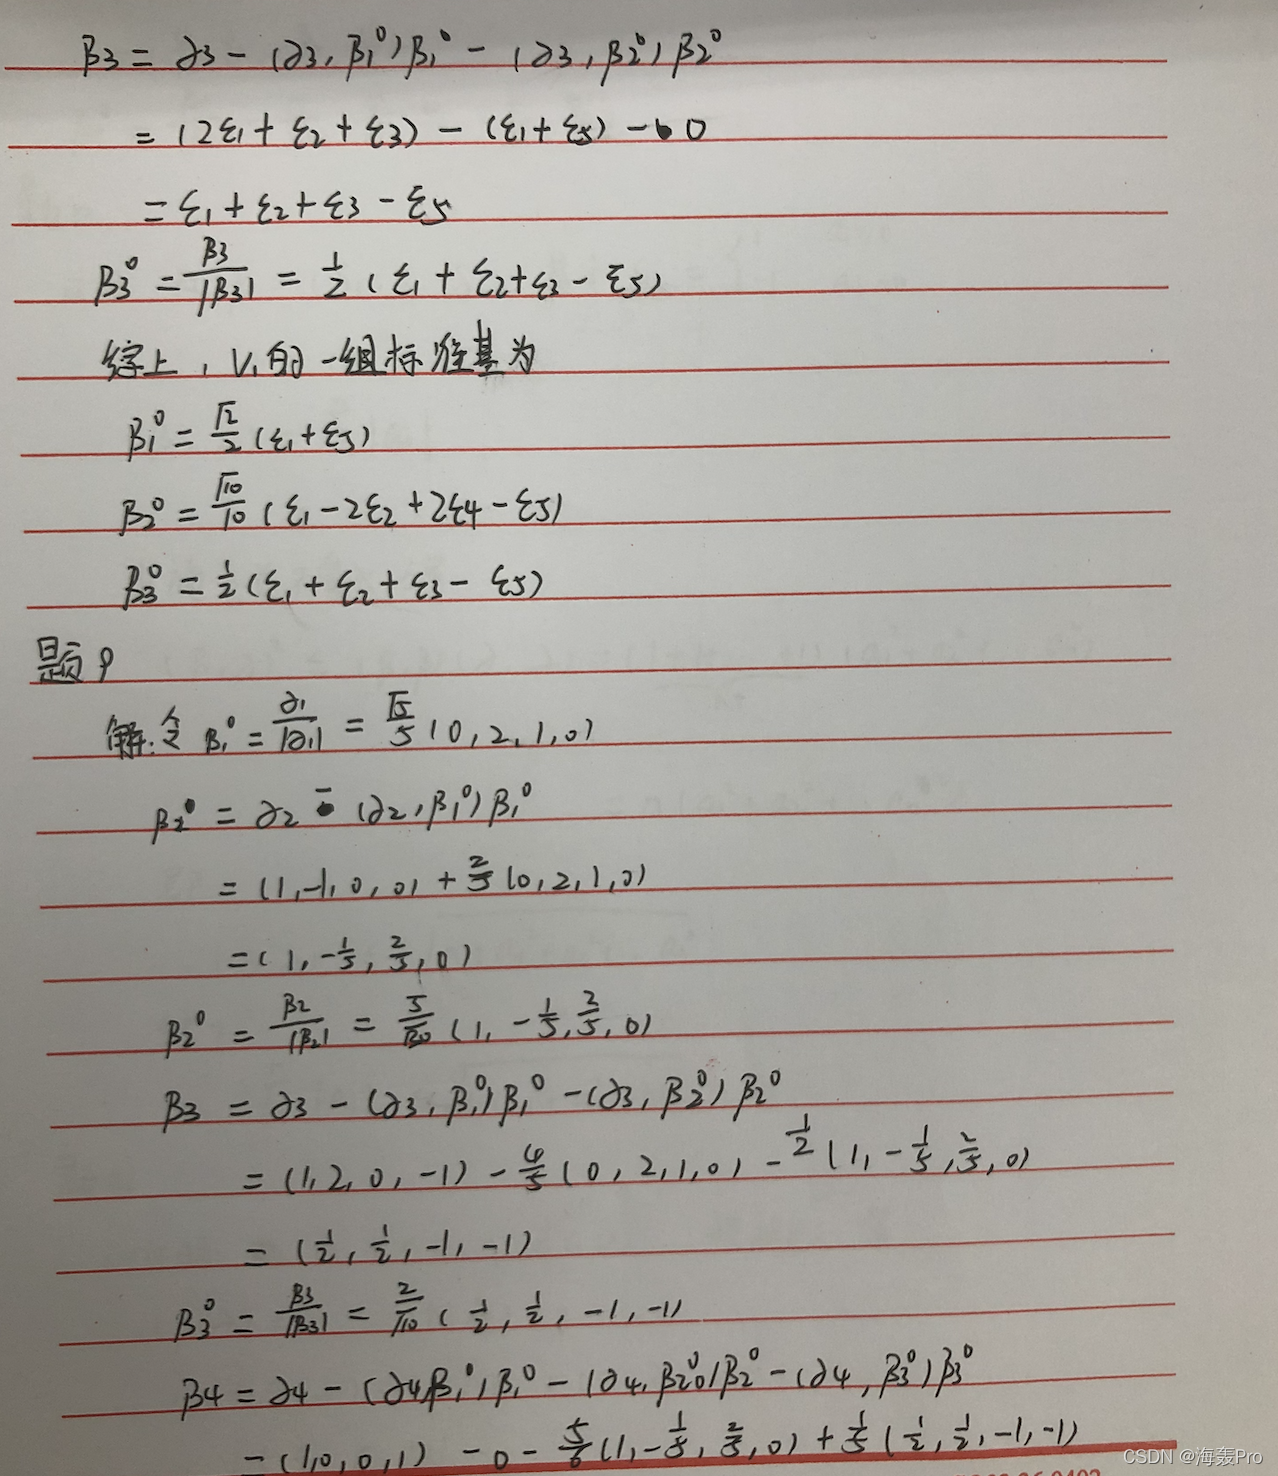 β3 = ∂3 - (∂3, β1⁰)β1⁰ - (∂3, β2⁰)β2⁰
= (2ξ1 + ξ2 + ξ3) - (ξ1 + ξ5) - 0
= ξ1 + ξ2 + ξ3 - ξ5
β3⁰ = β3/|β3| = 1/2 (ξ1 + ξ2 + ξ3 - ξ5)
综上, V1的一组标准基为
β1⁰ = √2/2 (ξ1 + ξ5)
β2⁰ = √10/10 (ξ1 - 2ξ2 + 2ξ4 - ξ5)
β3⁰ = 1/2 (ξ1 + ξ2 + ξ3 - ξ5)
题9
解:令 β1⁰ = ∂1/|∂1| = √5/5 (0, 2, 1, 0)
β2⁰ = ∂2 - (∂2, β1⁰)β1⁰
= (1, -1, 0, 0) + 2/5 (0, 2, 1, 0)
= (1, -1/5, 2/5, 0)
β2⁰ = β2/|β2| = 5/√30 (1, -1/5, 2/5, 0)
β3 = ∂3 - (∂3, β1⁰)β1⁰ - (∂3, β2⁰)β2⁰
= (1, 2, 0, -1) - 4/5 (0, 2, 1, 0) - 1/2 (1, -1/5, 2/5, 0)
= (1/2, 1/2, -1, -1)
β3⁰ = β3/|β3| = 2/√10 (1/2, 1/2, -1, -1)
β4 = ∂4 - (∂4, β1⁰)β1⁰ - (∂4, β2⁰)β2⁰ - (∂4, β3⁰)β3⁰
= (1, 0, 0, 1) - 0 - 5/6 (1, -1/5, 2/5, 0) + 1/5 (1/2, 1/2, -1, -1)
CSDN @海轰Pro